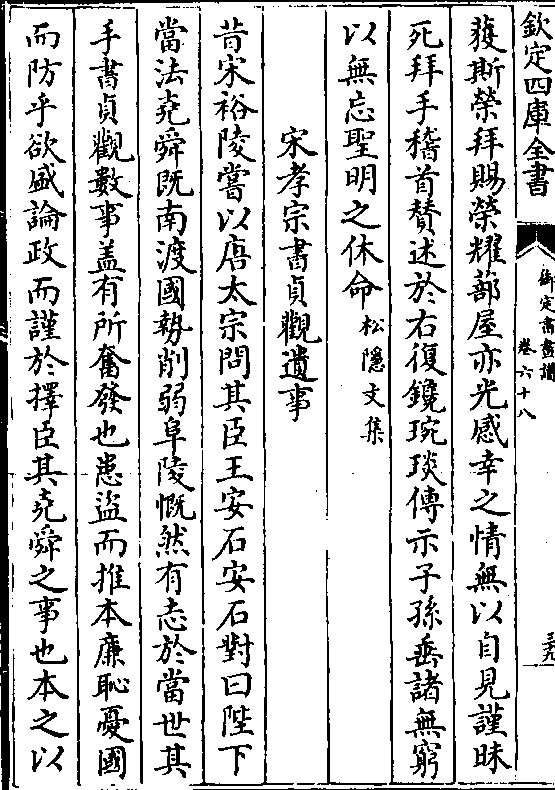 欽定四庫全書
御定書畫譜
卷六十八
獲斯榮拜賜榮耀蔀屋亦光感幸之情無以自見謹昧
死拜手稽首贊述於右復鑱琬琰傳示子孫垂諸無窮
以無忘聖明之休命松隱文集
宋孝宗書貞觀遺事
昔宋裕陵嘗以唐太宗問其臣王安石安石對曰陛下
當法堯舜既南渡國勢削弱阜陵慨然有志於當世其
手書貞觀數事蓋有所奮發也患盜而推本廉恥憂國
而防乎欲盛論政而謹於擇臣其堯舜之事也本之以